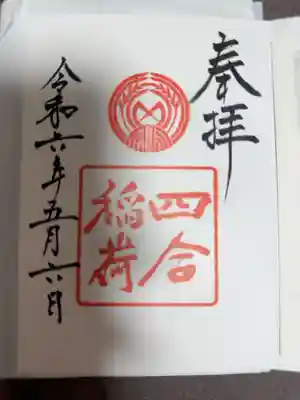 奉拝
四合
稲荷
令和六年五月六日